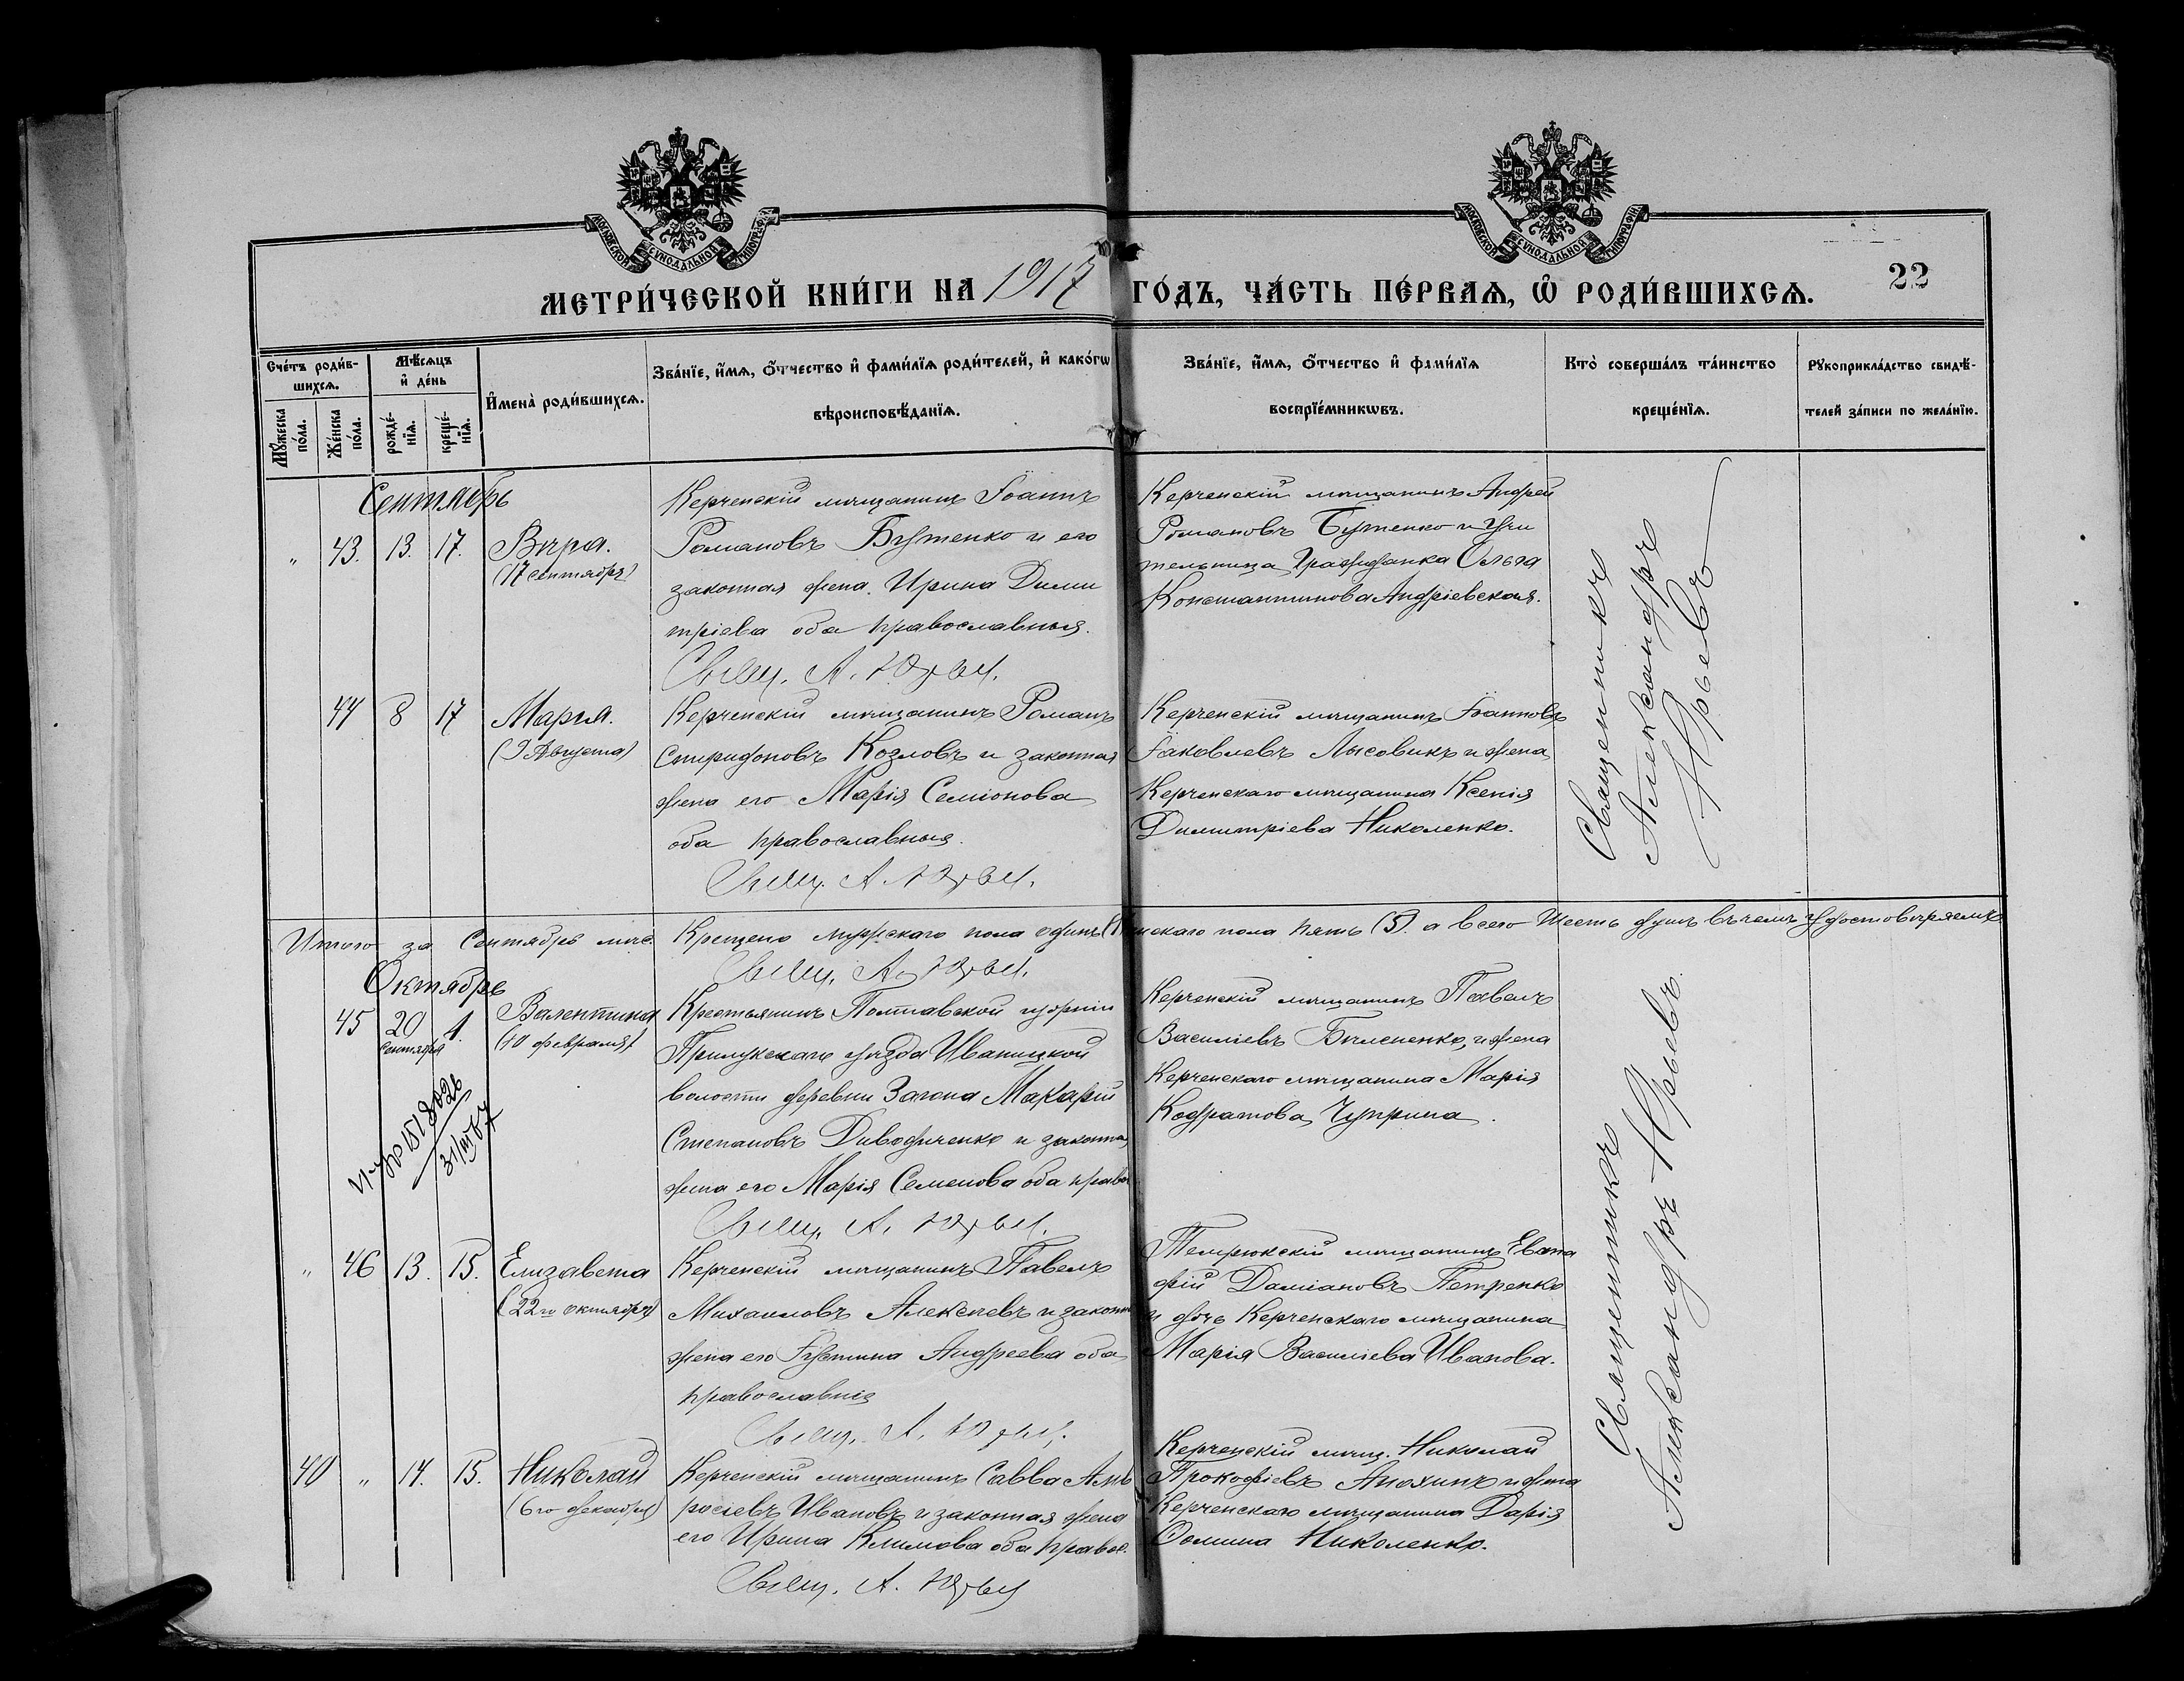 МОСКОВСКОЙ СѴНОДАЛЬНОЙ ТИПОГРАФІИ
МОСКОВСКОЙ СѴНОДАЛЬНОЙ ТИПОГРАФІИ
МЕТРИ́ЧЕСКОЙ КНИ́ГИ НА 1917 ГО́ДЪ, ЧА́СТЬ ПЕ́РВАѦ, Ѡ҆ РОДИ́ВШИХСѦ.
22
Сче́тъ роди́в-
шихсѧ.
Мꙋ́жеска по́ла.
Же́нска по́ла.
Мѣ́сѧцъ
и҆ де́нь
рожде́-
нїѧ.
креще́-
нїѧ.
И҆мена̀ роди́вшихсѧ.
Зва́нїе, и҆́мѧ, ѻ҆́тчество и҆ фами́лїѧ роди́телей, и҆ како́гѡ
вѣроисповѣ́данїѧ.
Зва́нїе, и҆́мѧ, ѻ҆́тчество и҆ фами́лїѧ
воспрїе́мникѡвъ.
Кто̀ соверша́лъ та́инство
креще́нїѧ.
Рꙋкоприкла́дство свидѣ́-
телей за́писи по жела́нїю.
Сентябрь
" 43. 13. 17. Вѣра.
(17 сентября)
Керченскій мѣщанинъ Іоаннъ
Романовъ Бутенко и его
законная жена Ирина Дими
тріева оба православныя.
Свящ. А. Юрьев.
Керченскій мѣщанинъ Андрей
Романовъ Бутенко и учи
тельница гражданка Ольга
Константинова Андріевская.
44 8 17 Марія.
(9 Августа)
Керченскій мѣщанинъ Романъ
Спиридоновъ Козловъ и законная
жена его Марія Семіонова
оба православныя.
Свящ. А. Юрьев.
Керченскій мѣщанинъ Іоанновъ
Іаковлевъ Лысовикъ и жена
Керченскаго мѣщанина Ксенія
Димитріева Николенко.
Священникъ
Александръ
Юрьевъ
Итого за Сентябрь мѣс. Крещено мужскаго пола одинъ (1) женскаго пола пять (5). а всего шесть душъ въ чемъ удостовѣряемъ
Свящ. А. Юрьев.
Октябрь
45 20 1. Валентина
сентября (10 февраля)
Крестьянинъ Полтавской губерніи
Прилукскаго уѣзда Иваницкой
волости деревни Загона Макарій
Степановъ Диводиченко и законная
жена его Марія Семенова оба правос
Свящ. А. Юрьев.
Керченскій мѣщанинъ Павелъ
Василіевъ Биленко, и жена
Керченскаго мѣщанина Марія
Кодратова Чуприна.
31/III 67
" 46 13. 15. Елизавета
(22го октября)
Керченскій мѣщанинъ Павелъ
Михаиловъ Алексѣевъ и законн
жена его Іустина Андреева оба
православнія
Свящ. А. Юрьев.
Темрюкскій мѣщанинъ Евста
фій Даміановъ Петренко
и дочь Керченскаго мѣщанина
Марія Василіева Иванова.
40 " 14. 15. Николай
(6го декабря)
Керченскій мѣщанинъ Савва Амв
росіевъ Ивановъ и законная жена
его Ирина Климова оба правос.
Свящ. А. Юрьев
Керченскій мѣщ. Николай
Прокофіевъ Анохинъ и жена
Керченскаго мѣщанина Дарія
Ѳомина Николенко.
Священникъ
Александръ Юрьевъ.